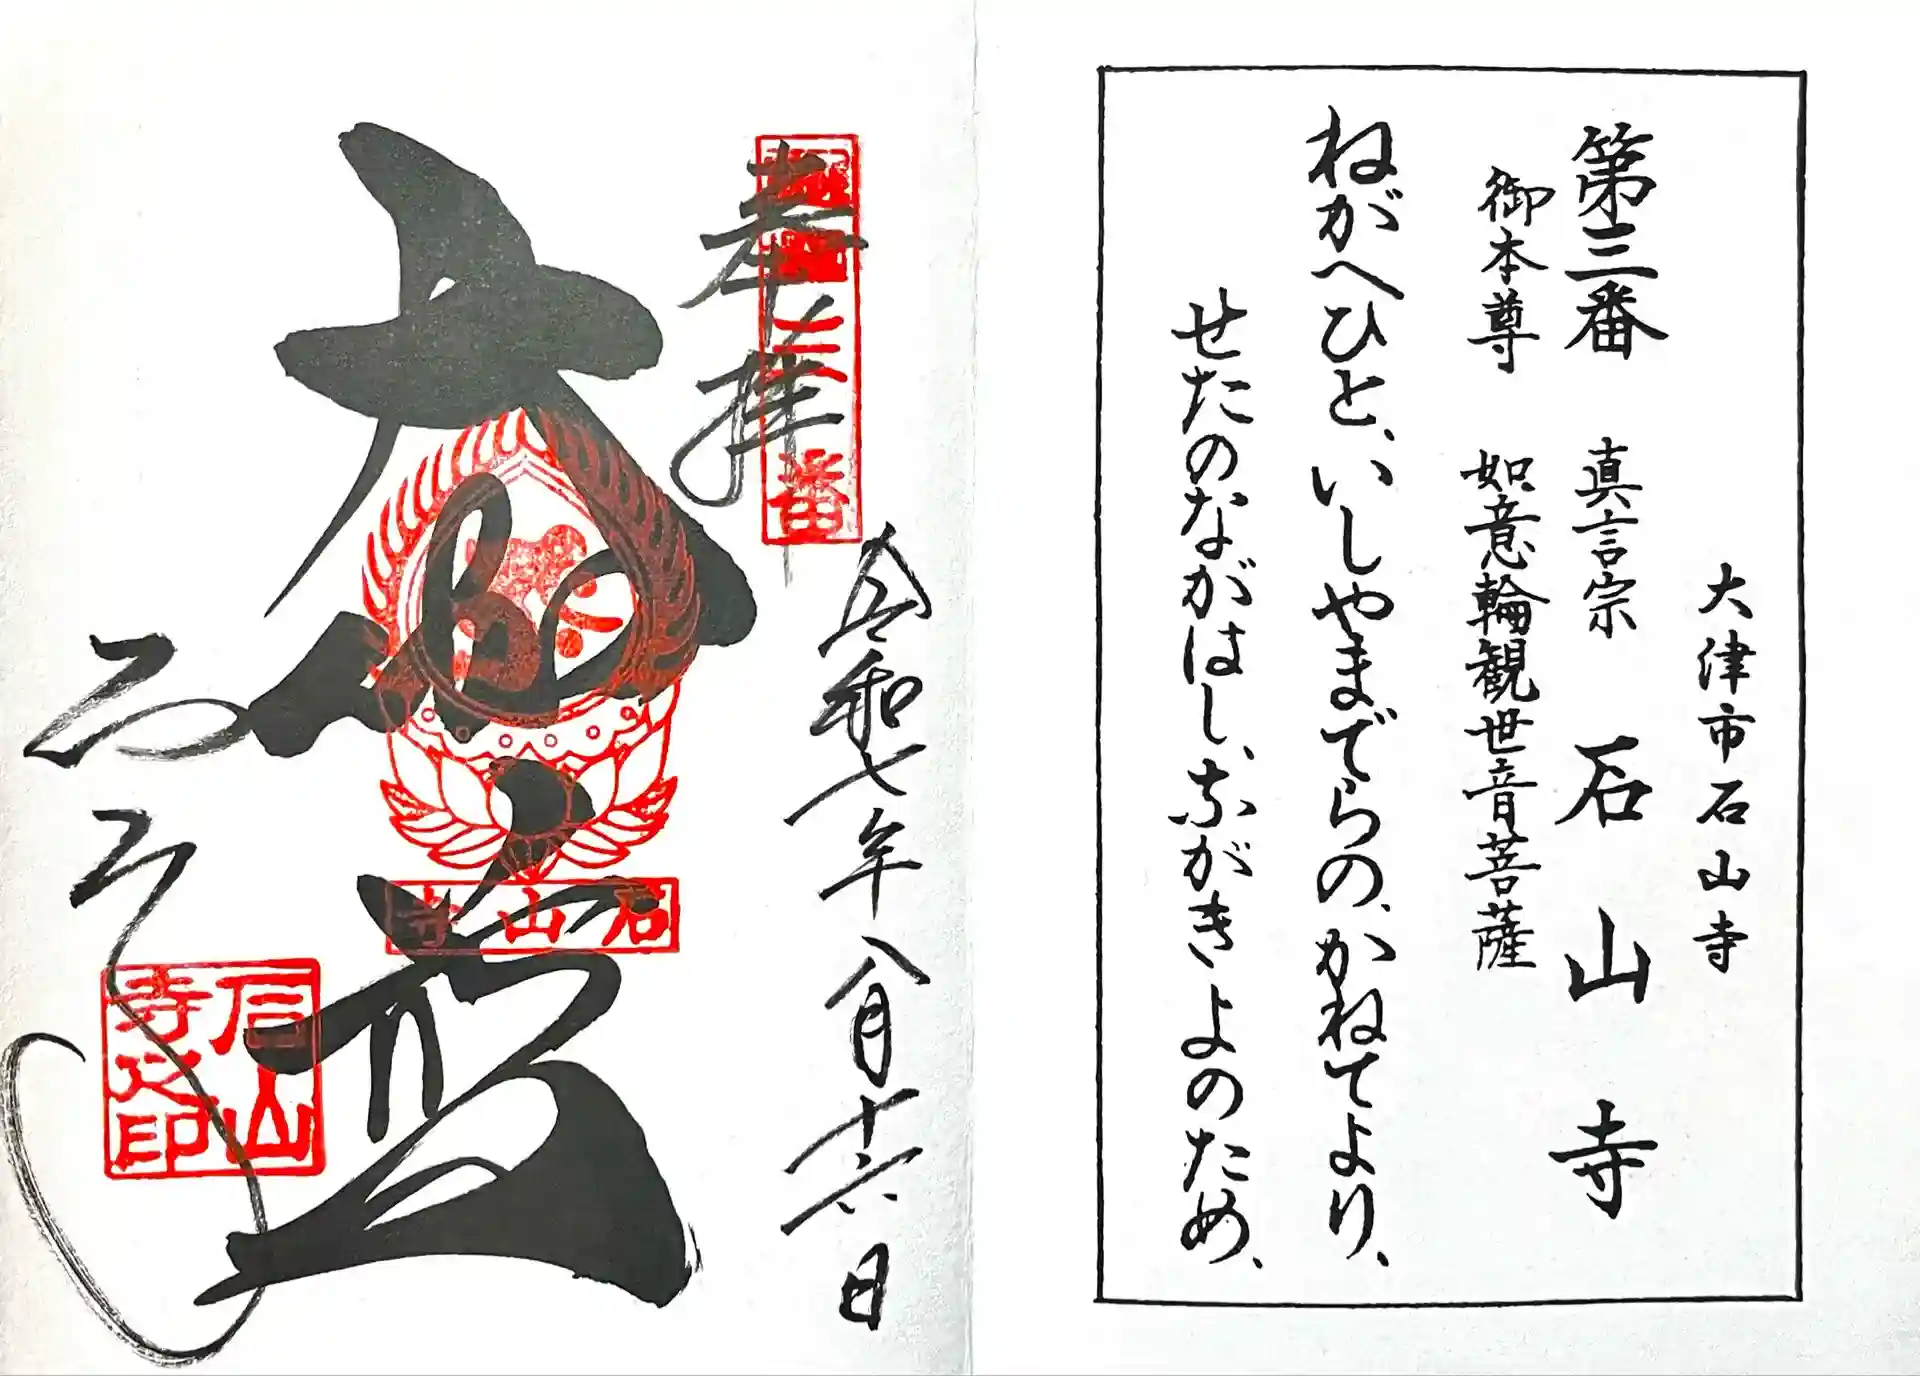 大津市石山寺
第三番 真言宗 石山寺
御本尊 如意輪観世音菩薩
ねがへひと、いしやまでらの、かねてより、
せたのながはし、ながきよのため、
奉拝
三番
令和七年八月十六日
大伽藍
石山寺
石山寺之印